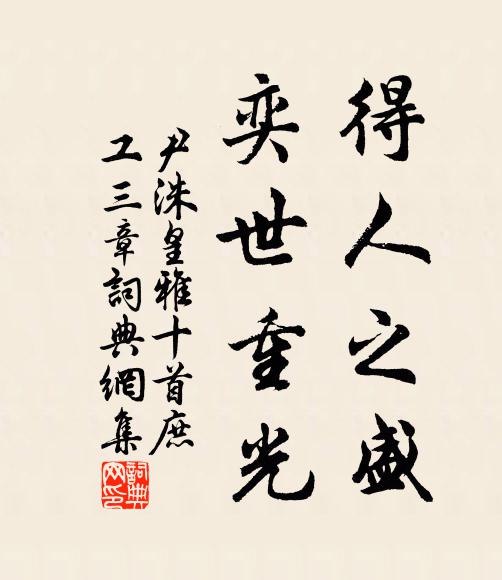 得人之盛
奕世重光
尹洙皇雅十首庶
工三章詞典網集
詞典网印